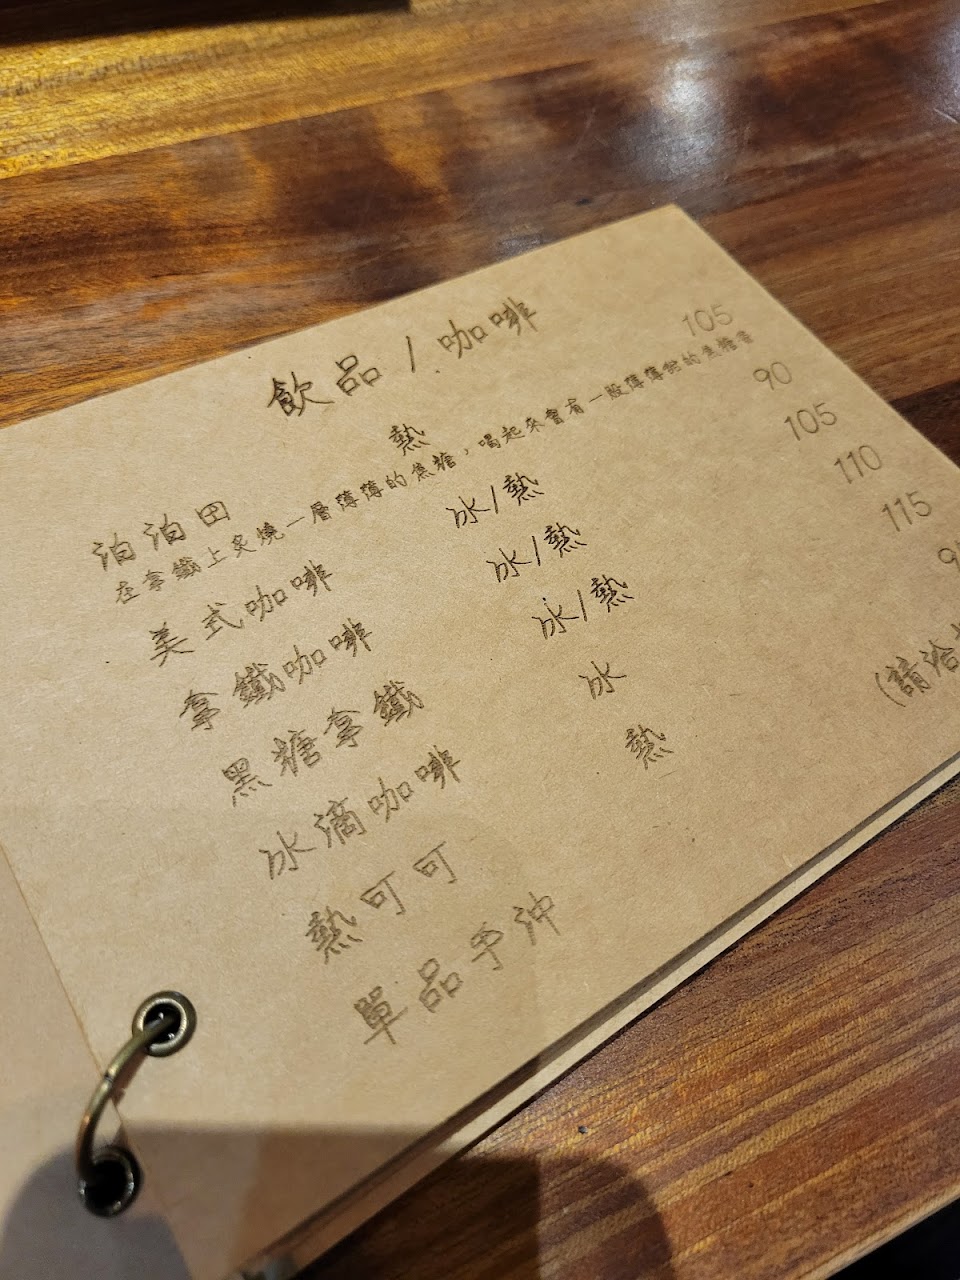 飲品/咖啡
泊泊田 熱 105
在拿鐵上炙燒一層薄薄的焦糖,喝起來會有一股薄薄的焦糖香
美式咖啡 冰/熱 90
拿鐵咖啡 冰/熱 105
黑糖拿鐵 冰/熱 110
冰滴咖啡 冰 115
熱可可 熱 9
單品手沖 (請洽